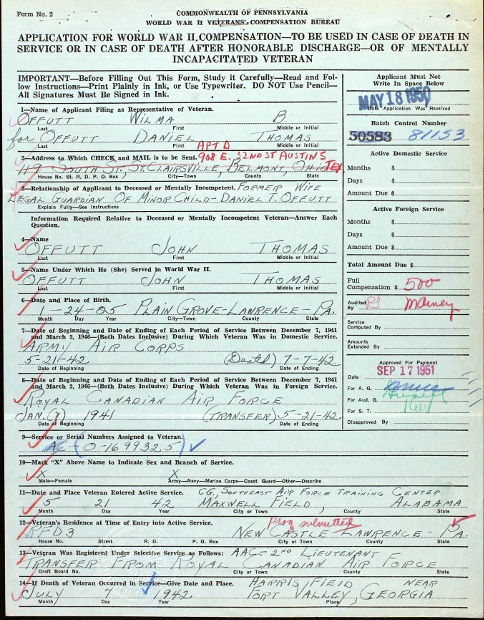 Form No. 2
COMMONWEALTH OF PENNSYLVANIA
WORLD WAR II VETERANS' COMPENSATION BUREAU
APPLICATION FOR WORLD WAR II COMPENSATION—TO BE USED IN CASE OF DEATH IN
SERVICE OR IN CASE OF DEATH AFTER HONORABLE DISCHARGE—OR OF MENTALLY
INCAPACITATED VETERAN
IMPORTANT—Before Filling Out This Form, Study it Carefully—Read and Fol-
low Instructions—Print Plainly in Ink, or Use Typewriter. DO NOT Use Pencil—
All Signatures Must Be Signed in Ink.
1—Name of Applicant Filing as Representative of Veteran.
OFFUTT WILMA B.
Last First Middle or Initial
for OFFUTT DANIEL THOMAS
Last First Middle or Initial
APT D
2—Address to Which CHECK and MAIL is to be Sent. 908 E. 32ND ST AUSTIN 5
119 SOUTH ST., ST. CLAIRSVILLE, BELMONT, OHIO TEX
House No. St. R. D. P. O. Box City—Town County State
3—Relationship of Applicant to Deceased or Mentally Incompetent. FORMER WIFE
LEGAL GUARDIAN OF MINOR CHILD - DANIEL T. OFFUTT
Explain Fully—See Instructions
Information Required Relative to Deceased or Mentally Incompetent Veteran—Answer Each
Question.
4—Name
OFFUTT JOHN THOMAS
Last First Middle or Initial
5—Name Under Which He (She) Served in World War II.
OFFUTT JOHN THOMAS
Last First Middle or Initial
6—Date and Place of Birth.
1-24-05 PLAIN GROVE - LAWRENCE - PA.
Month Day Year City—Town County State
7—Date of Beginning and Date of Ending of Each Period of Service Between December 7, 1941
and March 2, 1946—(Both Dates Inclusive) During Which Veteran Was in Domestic Service.
ARMY AIR CORPS
5-21-42 (Death) 7-7-42
Date of Beginning Date of Ending
8—Date of Beginning and Date of Ending of Each Period of Service Between December 7, 1941
and March 2, 1946—(Both Dates Inclusive) During Which Veteran Was in Foreign Service.
ROYAL CANADIAN AIR FORCE
JAN. (?) 1941 (TRANSFER) 5-21-42
Date of Beginning Date of Ending
9—Service or Serial Numbers Assigned to Veteran.
(O-1699325)
10—Mark "X" Above Name to Indicate Sex and Branch of Service.
X X
Male—Female Army—Navy—Marine Corps—Coast Guard—Other—Describe
11—Date and Place Veteran Entered Active Service. CG, SOUTHEAST AIR FORCE TRAINING CENTER
5 21 42 MAXWELL FIELD, ALABAMA
Month Day Year City or Town County State
12—Veteran's Residence at Time of Entry into Active Service. submitted
RFD 3 NEW CASTLE - LAWRENCE - PA.
House No. Street R. D. P. O. Box City or Town County State
13—Veteran Was Registered Under Selective Service as Follows: AAC - 2ND LIEUTENANT
TRANSFER FROM ROYAL CANADIAN AIR FORCE
Draft Board No. City or Town County State
14—If Death of Veteran Occurred in Service—Give Date and Place. HARRIS FIELD NEAR
JULY 7 1942 FORT VALLEY, GEORGIA
Month Day Year Place
Applicant Must Not
Write In Space Below
MAY 18 1950
Date Application Was Received
Batch Control Number
50583 81153
Active Domestic Service
Months $
Days $
Amount Due $
Active Foreign Service
Months $
Days $
Amount Due $
Total Amount Due $
Full
Compensation $ 500
Audited
By
Service
Computed By
Amounts
Extended By
Approved For Payment
SEP 17 1951
For A. G.
For Aud. G.
For S. T.
Disapproved By